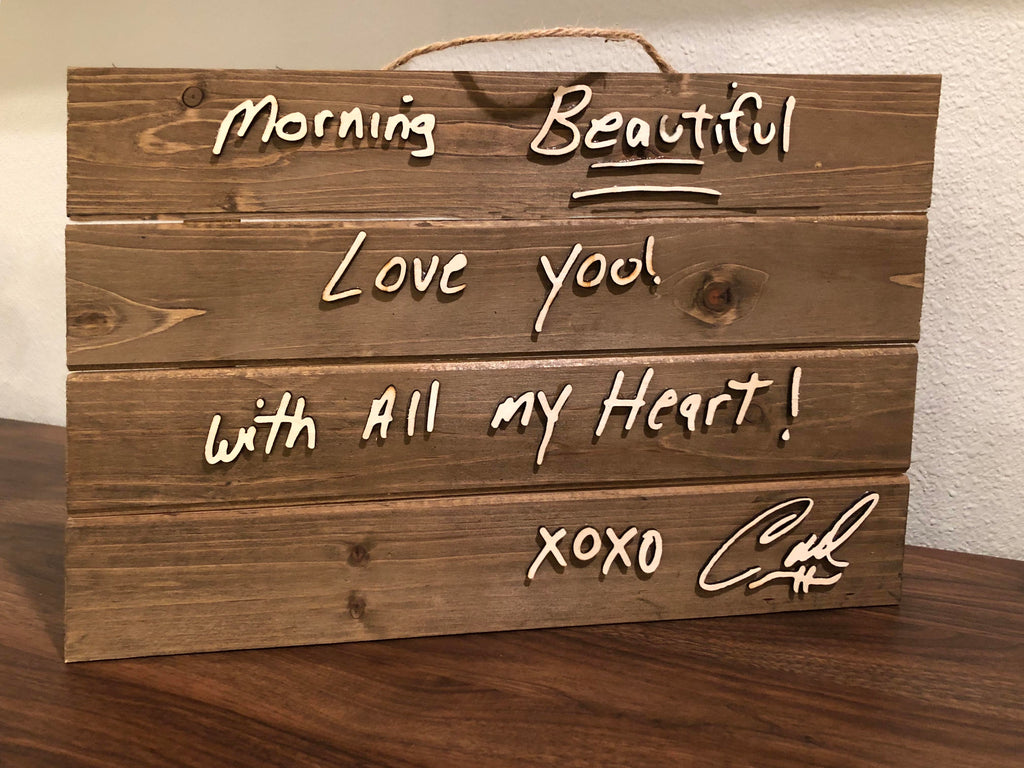 Morning Beautiful
Love you!
with All my Heart!
xoxo